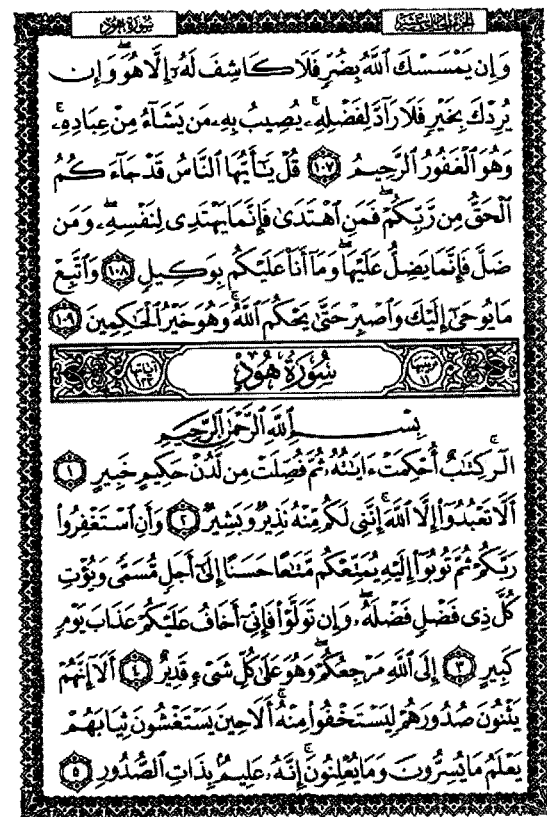 سُورَةُ هُودٍ
الجزء الحادي عشر
وَإِن يَمْسَسْكَ ٱللَّهُ بِضُرٍّ فَلَا كَاشِفَ لَهُۥٓ إِلَّا هُوَ ۖ وَإِن
يُرِدْكَ بِخَيْرٍ فَلَا رَآدَّ لِفَضْلِهِۦ ۚ يُصِيبُ بِهِۦ مَن يَشَآءُ مِنْ عِبَادِهِۦ ۚ
وَهُوَ ٱلْغَفُورُ ٱلرَّحِيمُ ١٠٧ قُلْ يَـٰٓأَيُّهَا ٱلنَّاسُ قَدْ جَآءَكُمُ
ٱلْحَقُّ مِن رَّبِّكُمْ ۖ فَمَنِ ٱهْتَدَىٰ فَإِنَّمَا يَهْتَدِى لِنَفْسِهِۦ ۖ وَمَن
ضَلَّ فَإِنَّمَا يَضِلُّ عَلَيْهَا ۖ وَمَآ أَنَا۠ عَلَيْكُم بِوَكِيلٍ ١٠٨ وَٱتَّبِعْ
مَا يُوحَىٰٓ إِلَيْكَ وَٱصْبِرْ حَتَّىٰ يَحْكُمَ ٱللَّهُ ۚ وَهُوَ خَيْرُ ٱلْحَـٰكِمِينَ ١٠٩
ترتيبها ١١ سُورَةُ هُودٍ آياتها ١٢٣
بِسْمِ ٱللَّهِ ٱلرَّحْمَـٰنِ ٱلرَّحِيمِ
الٓر ۚ كِتَـٰبٌ أُحْكِمَتْ ءَايَـٰتُهُۥ ثُمَّ فُصِّلَتْ مِن لَّدُنْ حَكِيمٍ خَبِيرٍ ١
أَلَّا تَعْبُدُوٓا۟ إِلَّا ٱللَّهَ ۚ إِنَّنِى لَكُم مِّنْهُ نَذِيرٌ وَبَشِيرٌ ٢ وَأَنِ ٱسْتَغْفِرُوا۟
رَبَّكُمْ ثُمَّ تُوبُوٓا۟ إِلَيْهِ يُمَتِّعْكُم مَّتَـٰعًا حَسَنًا إِلَىٰٓ أَجَلٍ مُّسَمًّى وَيُؤْتِ
كُلَّ ذِى فَضْلٍ فَضْلَهُۥ ۖ وَإِن تَوَلَّوْا۟ فَإِنِّىٓ أَخَافُ عَلَيْكُمْ عَذَابَ يَوْمٍ
كَبِيرٍ ٣ إِلَى ٱللَّهِ مَرْجِعُكُمْ ۖ وَهُوَ عَلَىٰ كُلِّ شَىْءٍ قَدِيرٌ ٤ أَلَآ إِنَّهُمْ
يَثْنُونَ صُدُورَهُمْ لِيَسْتَخْفُوا۟ مِنْهُ ۚ أَلَا حِينَ يَسْتَغْشُونَ ثِيَابَهُمْ
يَعْلَمُ مَا يُسِرُّونَ وَمَا يُعْلِنُونَ ۚ إِنَّهُۥ عَلِيمٌۢ بِذَاتِ ٱلصُّدُورِ ٥